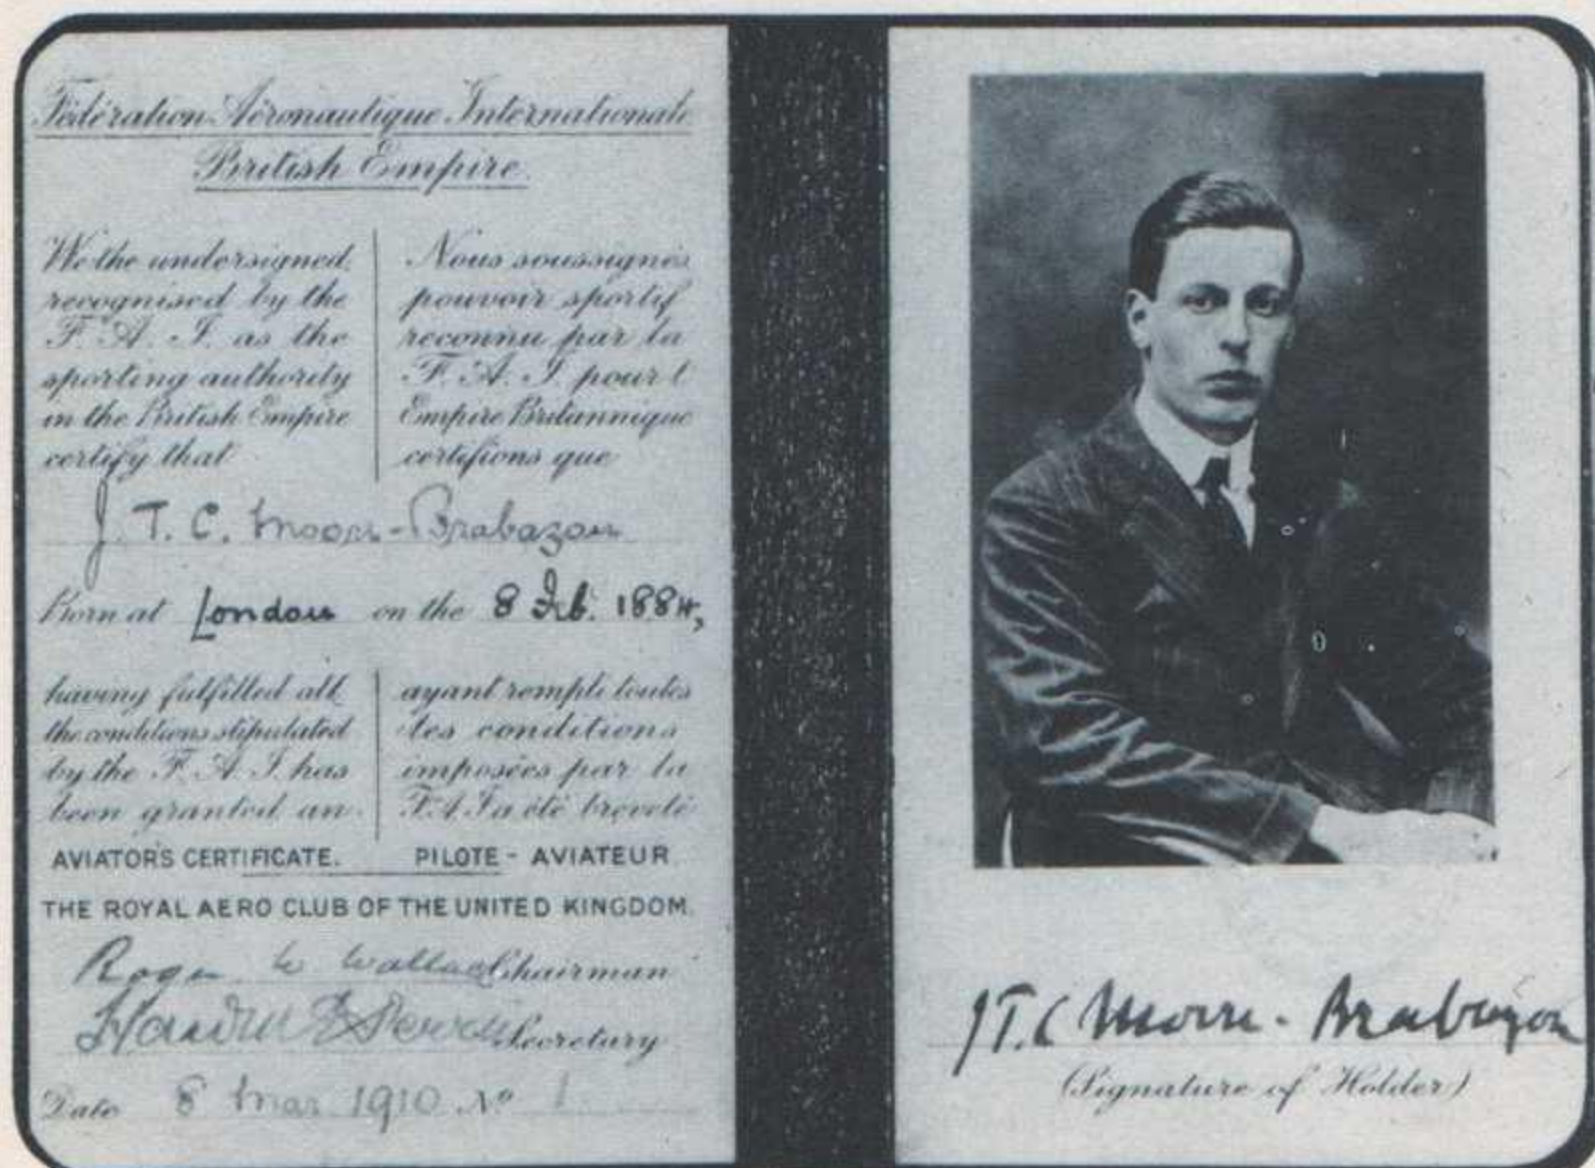 Fédération Aéronautique Internationale
British Empire.
We the undersigned
recognised by the
F. A. I. as the
sporting authority
in the British Empire
certify that
Nous soussignés
pouvoir sportif
reconnu par la
F. A. I pour l
Empire Britannique
certifions que
J. T. C. Moore-Brabazon
Born at London on the 8 Feb. 1884,
having fulfilled all
the conditions stipulated
by the F. A. I. has
been granted an
ayant rempli toutes
les conditions
imposées par la
F. A. I a été breveté
AVIATOR'S CERTIFICATE. PILOTE - AVIATEUR
THE ROYAL AERO CLUB OF THE UNITED KINGDOM.
Roger W Wallace Chairman
Harold E Perrin Secretary
Date 8 Mar 1910 No 1
J T. C Moore-Brabazon
(Signature of Holder)